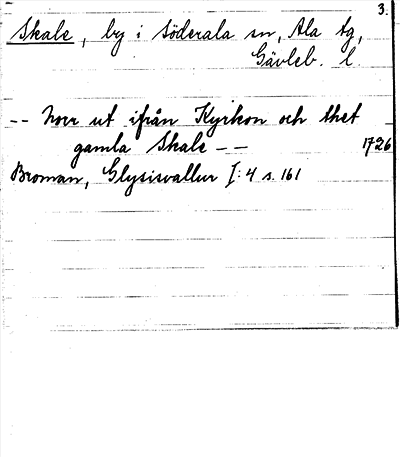 3.
Skale, by i Söderala sn, Ala tg,
Gävleb. l.
-- norr ut ifrån Kyrkon och thet
gamla Skale -- 1726
Broman, Glysisvallur I:4 s. 161